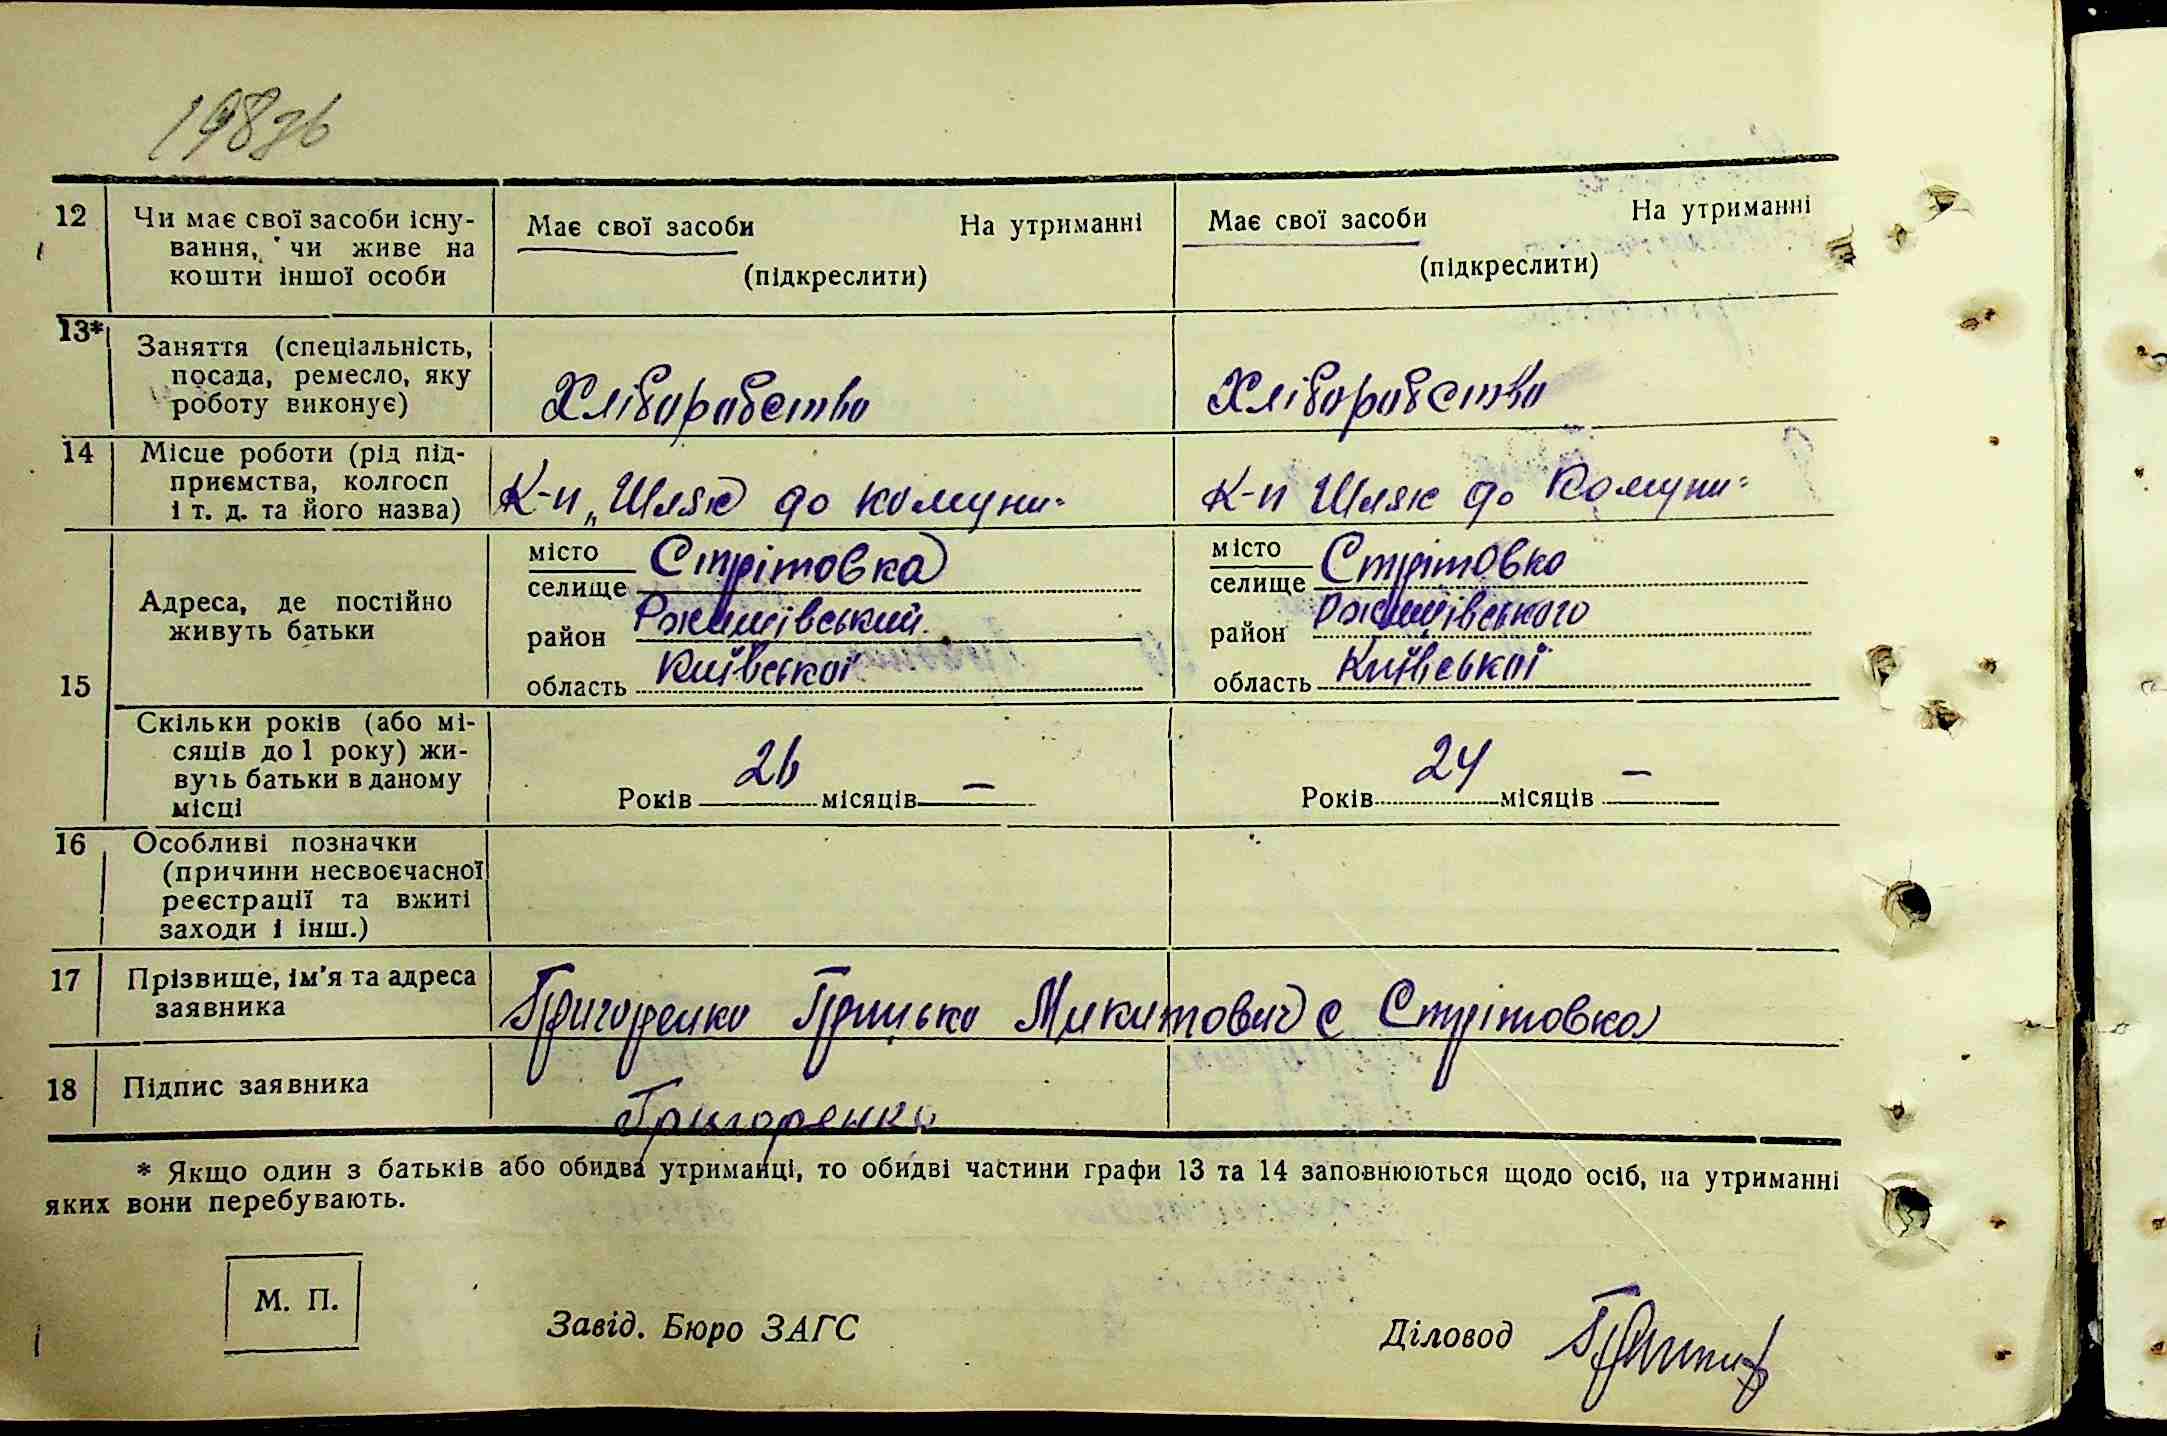 198зв
12 Чи має свої засоби існу- Має свої засоби На утриманні Має свої засоби На утриманні
вання, чи живе на
кошти іншої особи (підкреслити) (підкреслити)
13* Заняття (спеціальність,
посада, ремесло, яку
роботу виконує) Хліборобство Хліборобство
14 Місце роботи (рід під-
приємства, колгосп
і т. д. та його назва) К-п „Шлях до комуни- К-п Шлях до Комуни-
15 Адреса, де постійно
живуть батьки
місто Стрітовка місто Стрітовка
селище селище
район Ржищівський район Ржищівського
область Київської область Київської
Скільки років (або мі-
сяців до 1 року) жи-
вуть батьки в даному
місці
Років 26 місяців — Років 24 місяців —
16 Особливі позначки
(причини несвоєчасної
реєстрації та вжиті
заходи і інш.)
17 Прізвище, ім'я та адреса
заявника Григоренко Грицько Микитович с Стрітовка
18 Підпис заявника Григоренко
* Якщо один з батьків або обидва утриманці, то обидві частини графи 13 та 14 заповнюються щодо осіб, на утриманні
яких вони перебувають.
М. П.
Завід. Бюро ЗАГС Діловод